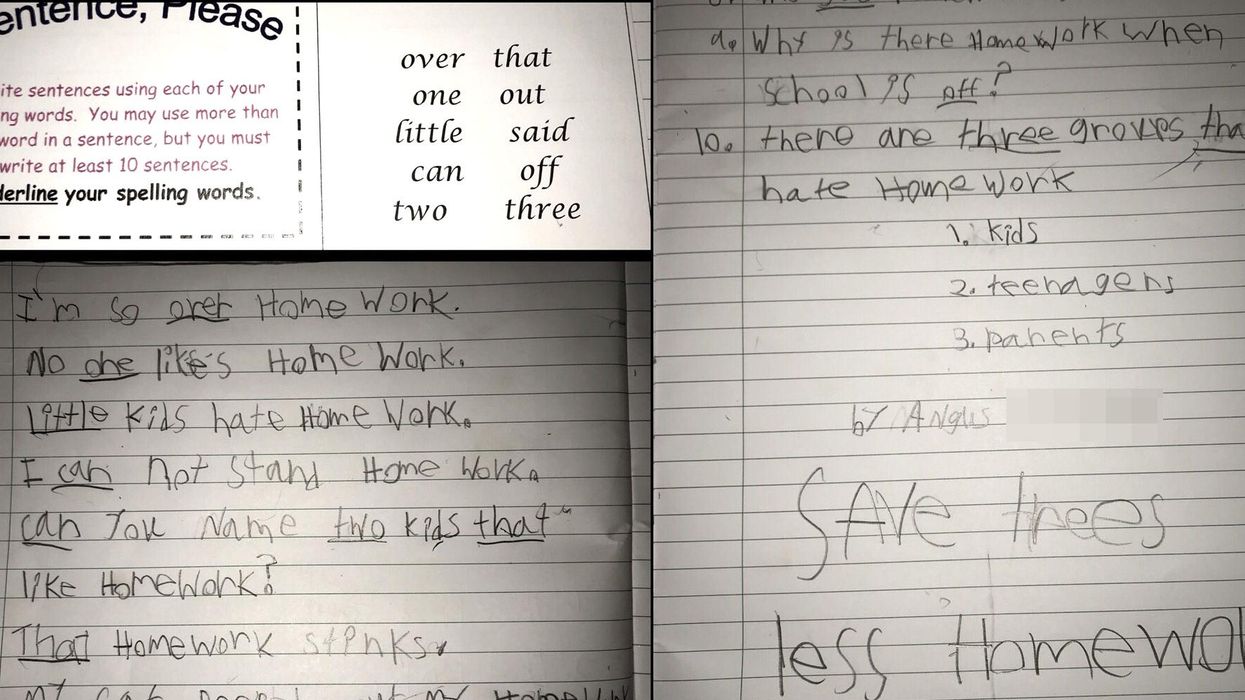 entence, Please
ite sentences using each of your
ng words. You may use more than
word in a sentence, but you must
write at least 10 sentences.
derline your spelling words.
over that
one out
little said
can off
two three
I'm so over Home Work.
No one like's Home Work.
Little kids hate Home Work.
I can not stand Home Work.
can you Name two kids that
like HomeWork?
That Homework stinks
my
9. Why is there Home Work when
school is off?
10. there are three groves tha
hate Home Work
1. kids
2. teenagers
3. parents
by Angus
SAVe trees
less Homewo